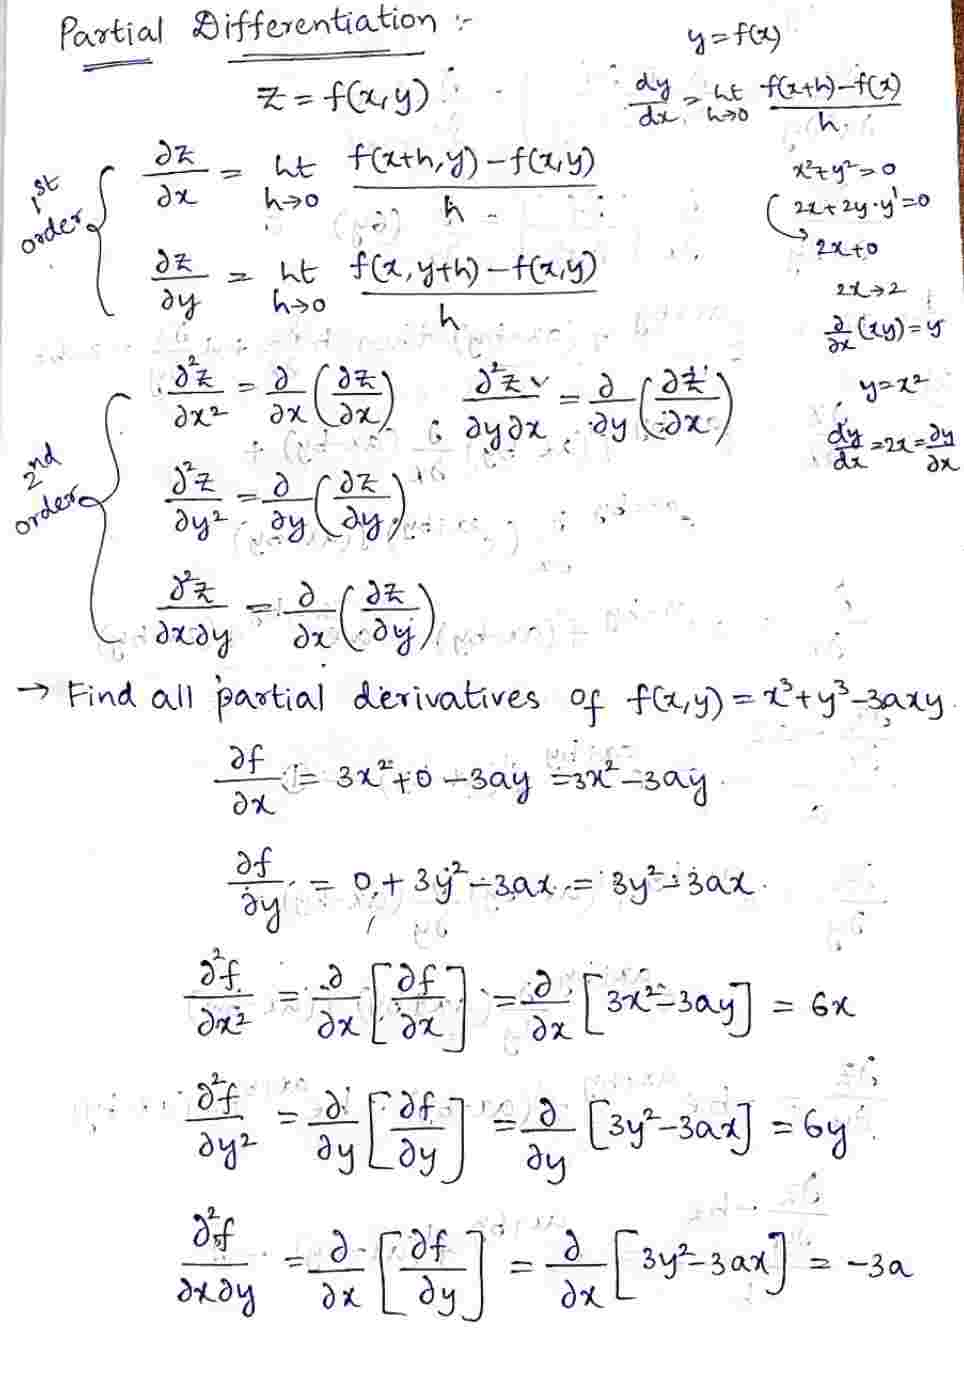 Partial Differentiation :-
z = f(x,y)
1st order
∂z/∂x = lt h→0 f(x+h,y)-f(x,y)/h
∂z/∂y = lt h→0 f(x,y+h)-f(x,y)/h
y=f(x)
dy/dx = lt h→0 f(x+h)-f(x)/h
x²+y²=0
2x+2y·y¹=0
2x+0
2x→2
∂/∂x (xy)=y
y=x²
dy/dx =2x= ∂y/∂x
2nd order
∂²z/∂x² = ∂/∂x (∂z/∂x) ; ∂²z/∂y∂x = ∂/∂y (∂z/∂x)
∂²z/∂y² = ∂/∂y (∂z/∂y)
∂²z/∂x∂y = ∂/∂x (∂z/∂y)
→ Find all partial derivatives of f(x,y) = x³+y³-3axy.
∂f/∂x = 3x²+0-3ay =3x²-3ay.
∂f/∂y = 0+3y²-3ax = 3y²-3ax.
∂²f/∂x² = ∂/∂x [∂f/∂x] = ∂/∂x [3x²-3ay] = 6x
∂²f/∂y² = ∂/∂y [∂f/∂y] = ∂/∂y [3y²-3ax] = 6y
∂²f/∂x∂y = ∂/∂x [∂f/∂y] = ∂/∂x [3y²-3ax] = -3a